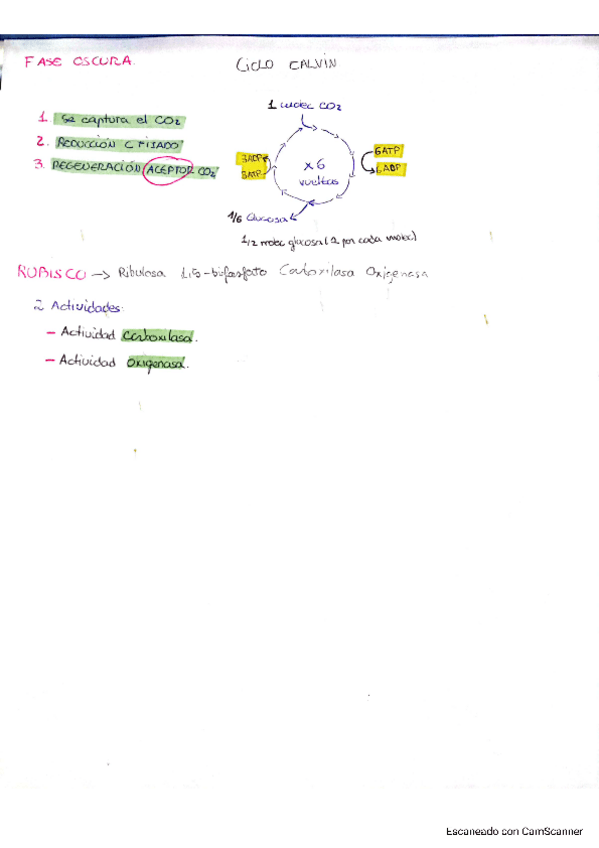 FASE OSCURA.
CICLO CALVIN
1 molec CO2
1. Se captura el CO2
2. REDUCCIÓN C FIJADO
3. REGENERACIÓN ACEPTOR CO2
3ADP
3ATP
x6
vueltas
6ATP
6ADP
1/6 Glucosa
1/2 molec glucosa (2 por cada molec)
RUBISCO → Ribulosa 1,5-bifosfato Carboxilasa Oxigenasa
2 Actividades:
- Actividad carboxilasa.
- Actividad oxigenasa.
Escaneado con CamScanner